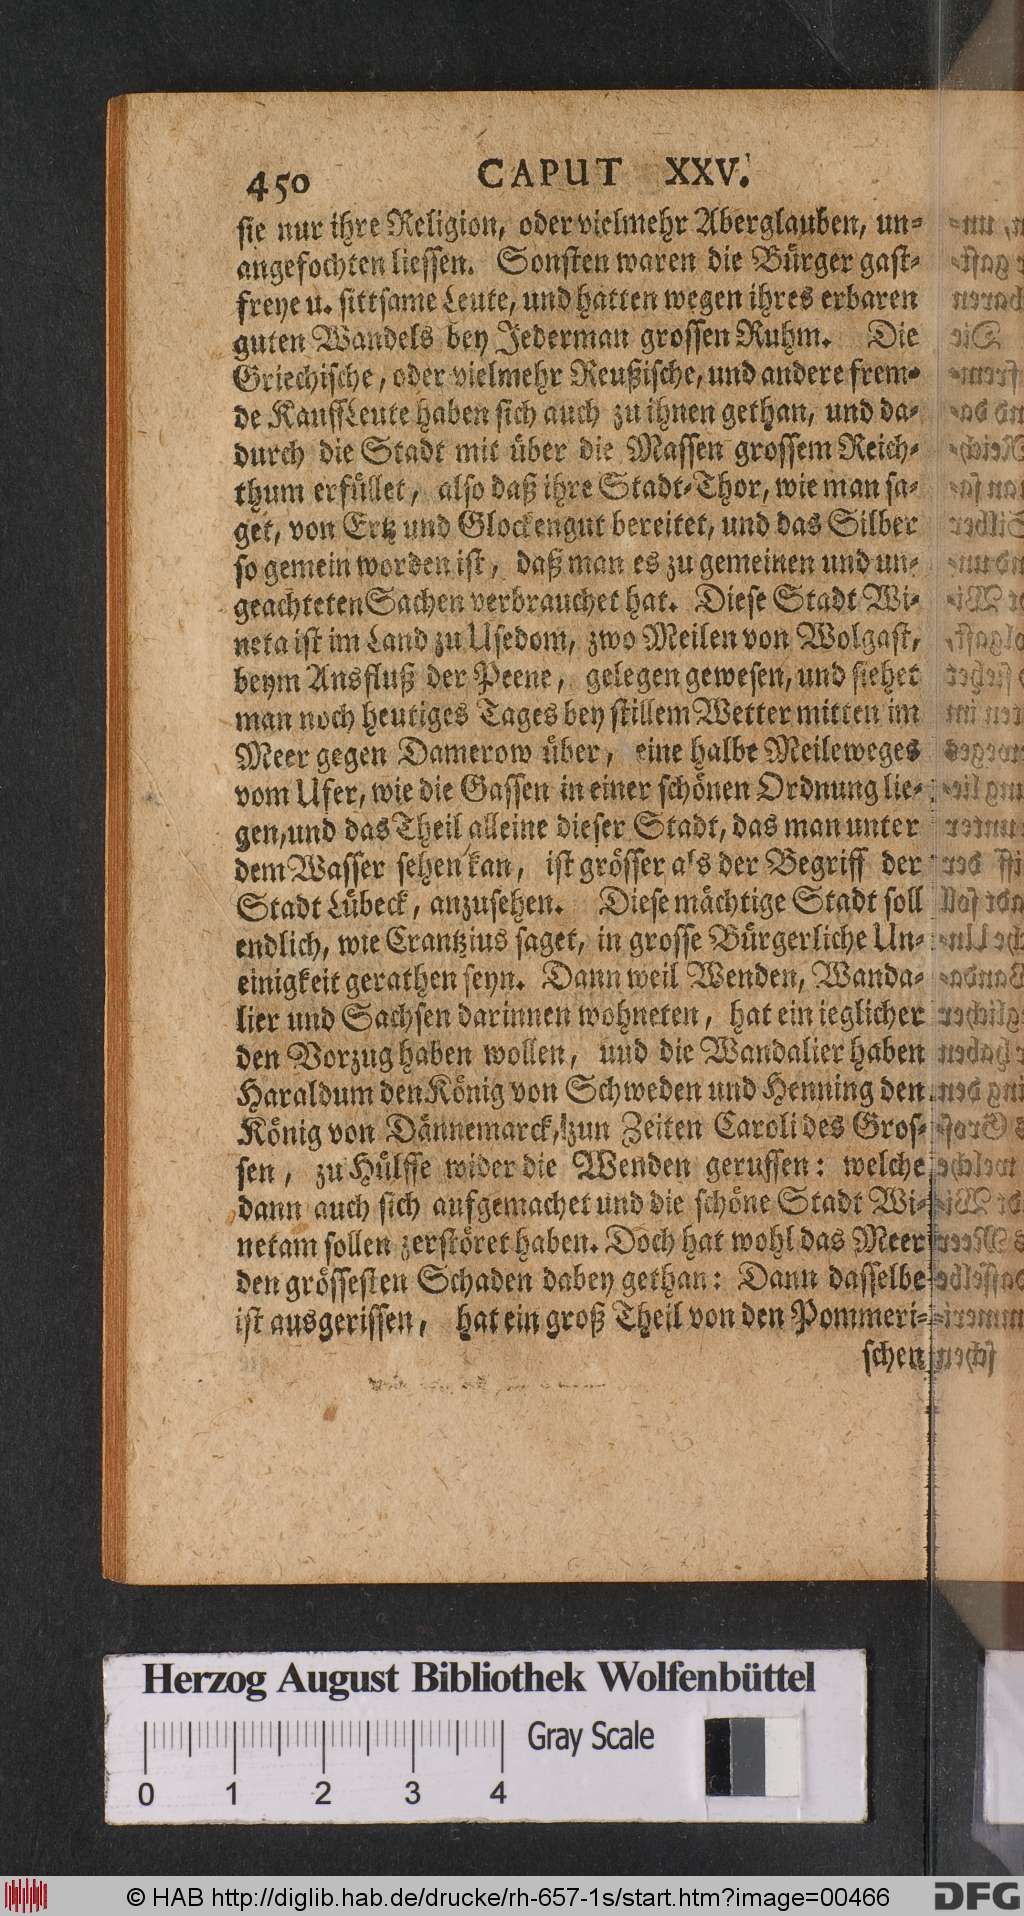 450 CAPUT XXV.
sie nur ihre Religion, oder vielmehr Aberglauben, un-
angefochten liessen. Sonsten waren die Bürger gast-
freye u. sittsame Leute, und hatten wegen ihres erbaren
guten Wandels bey Jederman grossen Ruhm. Die
Griechische, oder vielmehr Reußische, und andere frem-
de KauffLeute haben sich auch zu ihnen gethan, und da-
durch die Stadt mit über die Massen grossem Reich-
thum erfüllet, also daß ihre Stadt-Thor, wie man sa-
get, von Ertz und Glockengut bereitet, und das Silber
so gemein worden ist, daß man es zu gemeinen und un-
geachteten Sachen verbrauchet hat. Diese Stadt Wi-
neta ist im Land zu Usedom, zwo Meilen von Wolgast,
beym Ansfluß der Peene, gelegen gewesen, und siehet
man noch heutiges Tages bey stillem Wetter mitten im
Meer gegen Damerow über, eine halbe Meileweges
vom Ufer, wie die Gassen in einer schönen Ordnung lie-
gen, und das Theil alleine dieser Stadt, das man unter
dem Wasser sehen kan, ist grösser als der Begriff der
Stadt Lübeck, anzusehen. Diese mächtige Stadt soll
endlich, wie Crantzius saget, in grosse Bürgerliche Un-
einigkeit gerathen seyn. Dann weil Wenden, Wanda-
lier und Sachsen darinnen wohneten, hat ein ieglicher
den Vorzug haben wollen, und die Wandalier haben
Haraldum den König von Schweden und Henning den
König von Dännemarck, zun Zeiten Caroli des Gros-
sen, zu Hülffe wider die Wenden geruffen: welche
dann auch sich aufgemachet und die schöne Stadt Wi-
netam sollen zerstöret haben. Doch hat wohl das Meer
den grössesten Schaden dabey gethan: Dann dasselbe
ist ausgerissen, hat ein groß Theil von den Pommeri-
schen
Herzog August Bibliothek Wolfenbüttel
Gray Scale
0 1 2 3 4
© HAB http://diglib.hab.de/drucke/rh-657-1s/start.htm?image=00466
DFG